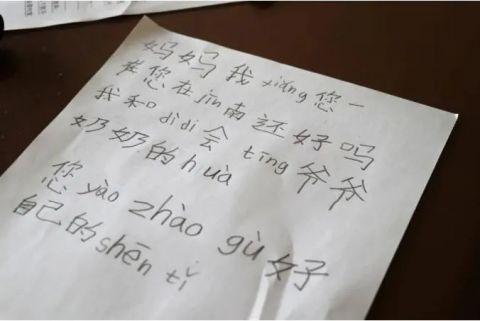 妈妈我xiǎng您一
您在jǐ南还好吗
我和dìdi会tīng爷爷
奶奶的huà
您yào zhào gù好
自己的shēn tǐ